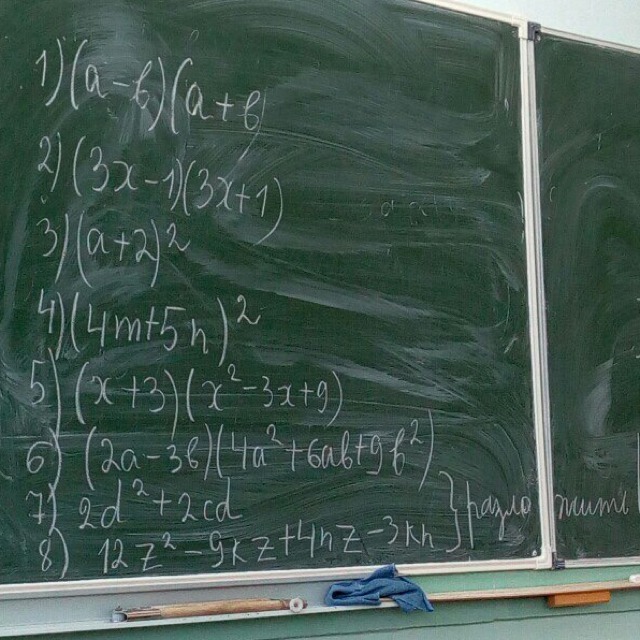 1) (a-b)(a+b)
2) (3x-1)(3x+1)
3) (a+2)²
4) (4m+5n)²
5) (x+3)(x²-3x+9)
6) (2a-3b)(4a²+6ab+9b²)
7) 2d²+2cd
8) 12z²-9kz+4nz-3kn } разложить